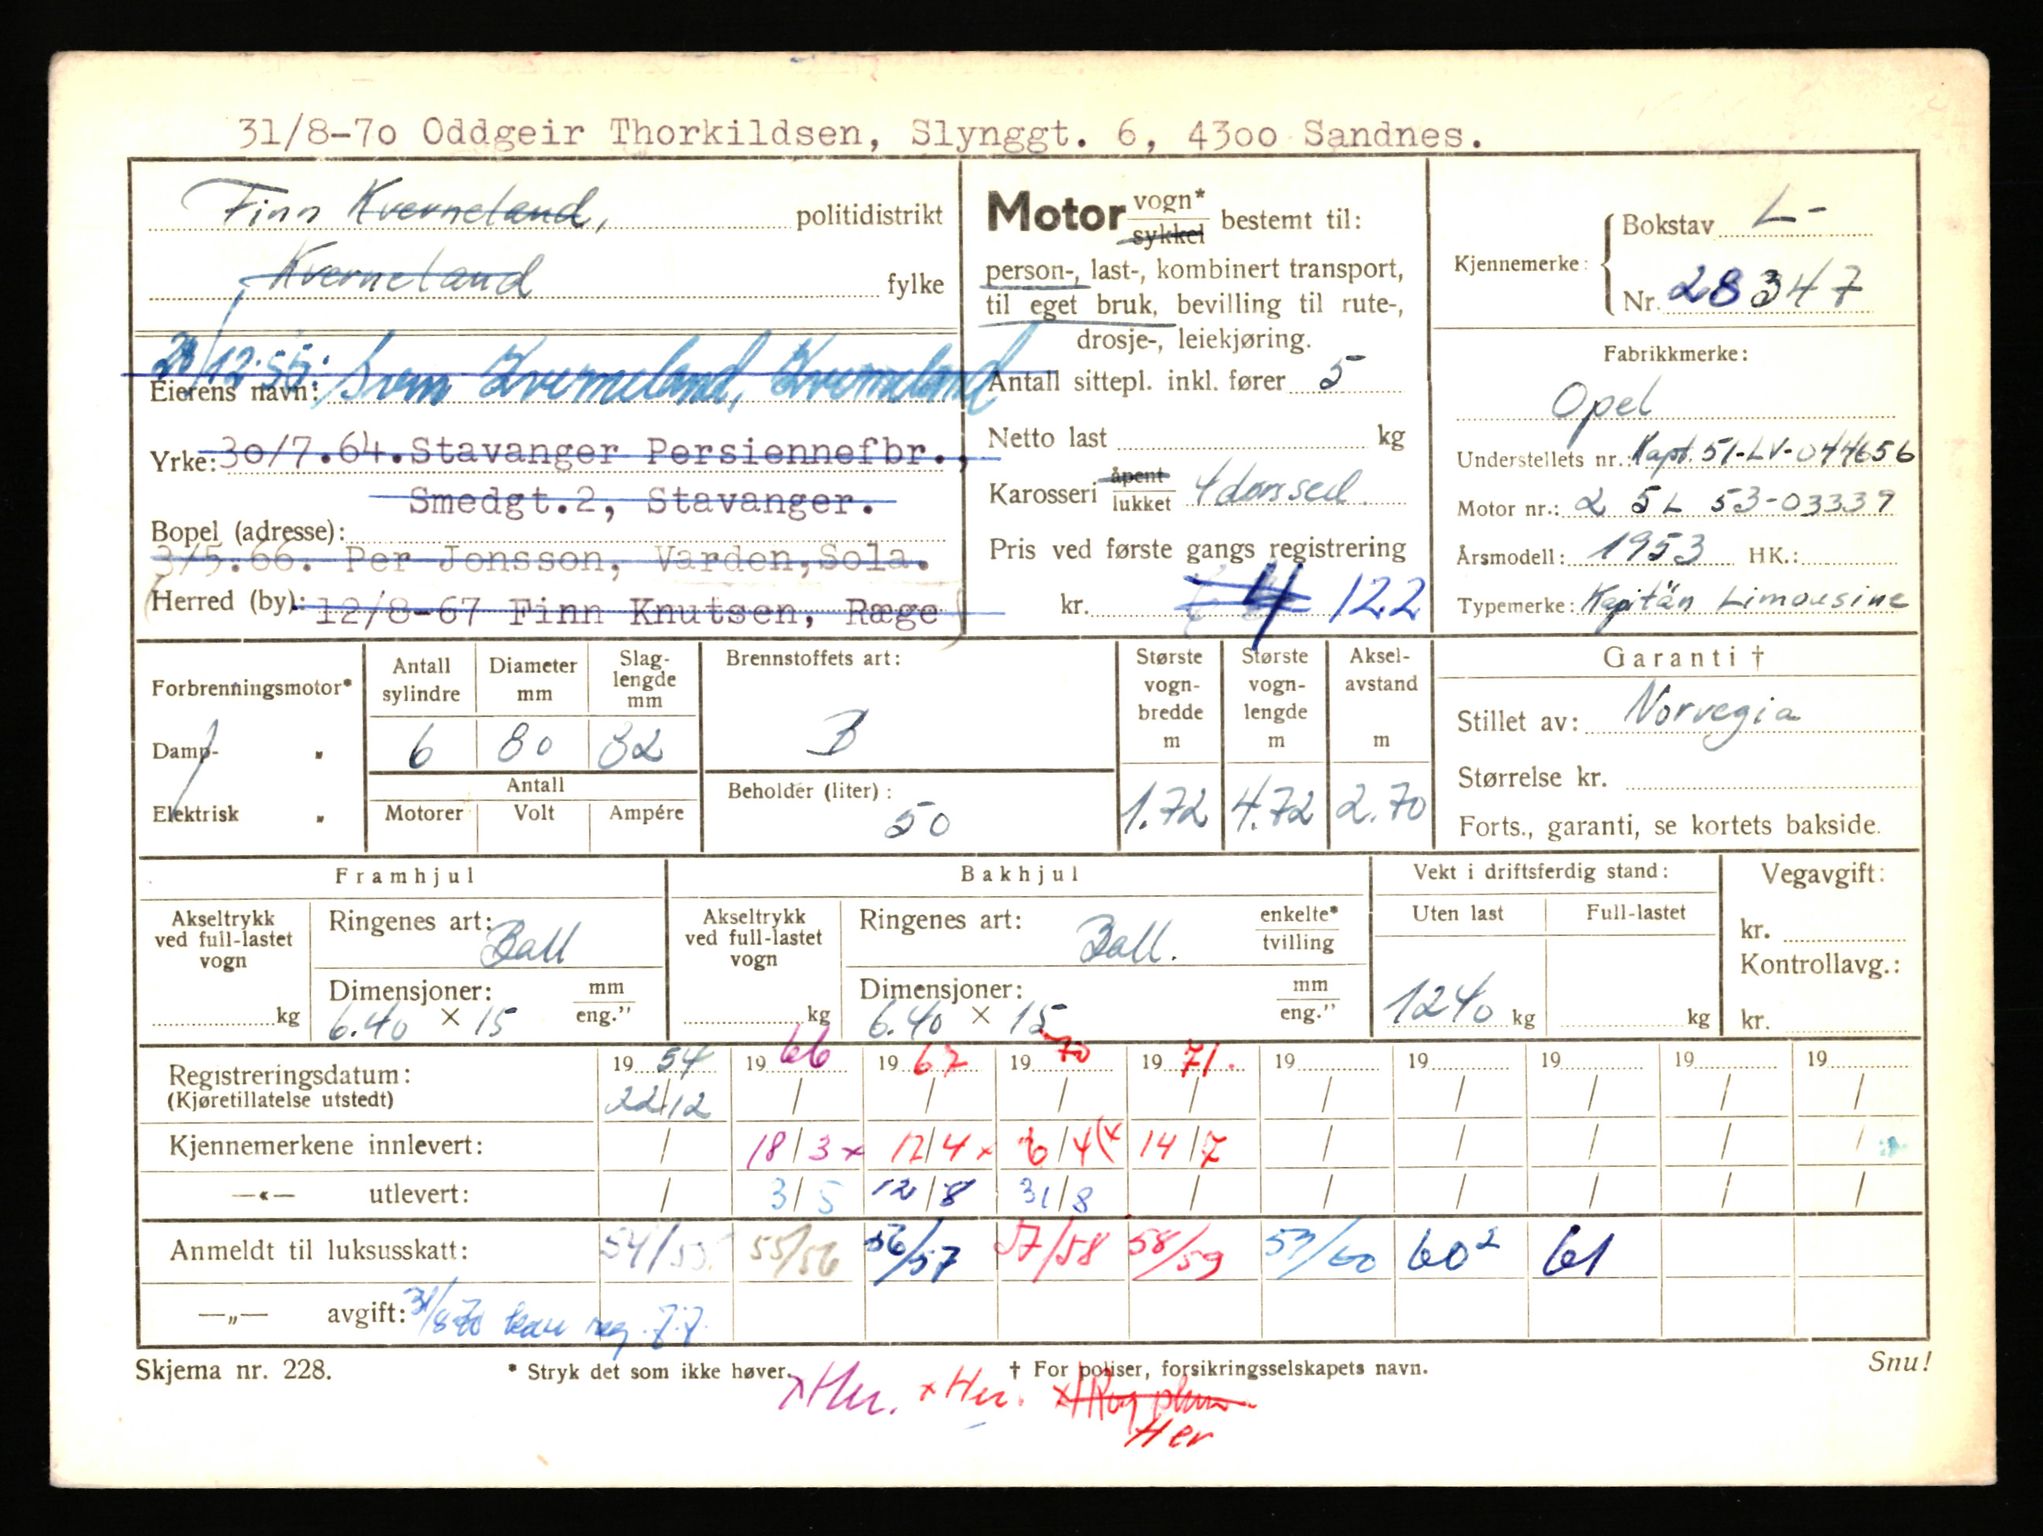 31/8-70 Oddgeir Thorkildsen, Slynggt. 6, 4300 Sandnes.
Finn Kverneland, politidistrikt
Kverneland fylke
Eierens navn: 28/12.55: Svein Kverneland, Kverneland
Yrke: 30/7.64. Stavanger Persiennefbr.,
Smedgt.2, Stavanger.
Bopel (adresse):
3/5.66. Per Jonsson, Varden, Sola.
Herred (by): 12/8-67 Finn Knutsen, Ræge
Motor vogn* sykkel bestemt til:
person-, last-, kombinert transport,
til eget bruk, bevilling til rute-,
drosje-, leiekjøring.
Antall sittepl. inkl. fører 5
Netto last kg
Karosseri åpent lukket 4 dørs sed.
Pris ved første gangs registrering
kr. 122
Kjennemerke: Bokstav L-
Nr. 28347
Fabrikkmerke:
Opel
Understellets nr.: Kapt. 51-LV-044656
Motor nr.: 2 5L 53-03339
Årsmodell: 1953 HK.:
Typemerke: Kapitän Limousine
Forbrenningsmotor*
Damp- "
Elektrisk "
Antall sylindre 6
Diameter mm 80
Slag-lengde mm 82
Antall
Motorer Volt Ampére
Brennstoffets art: B
Beholder (liter): 50
Største vogn-bredde m 1.72
Største vogn-lengde m 4.72
Aksel-avstand m 2.70
Garanti †
Stillet av: Norvegia
Størrelse kr.
Forts., garanti, se kortets bakside.
Framhjul
Akseltrykk ved full-lastet vogn kg
Ringenes art: Ball
Dimensjoner: mm eng."
6.40 × 15
Bakhjul
Akseltrykk ved full-lastet vogn kg
Ringenes art: Ball. enkelte* tvilling
Dimensjoner: mm eng."
6.40 × 15
Vekt i driftsferdig stand:
Uten last Full-lastet
1240 kg kg
Vegavgift:
kr.
Kontrollavg.:
kr.
19 54 19 66 19 67 19 70 19 71. 19 19 19 19 19
Registreringsdatum:
(Kjøretillatelse utstedt) 22/12 / / / / / / / / /
Kjennemerkene innlevert: / 18/3 x 12/4 x 6/4 (x 14/7 / / / / /
—«— utlevert: / 3/5 12/8 31/8 / / / / / /
Anmeldt til luksusskatt: 54/55 55/56 56/57 57/58 58/59 59/60 60² 61
—„— avgift: 31/8-70 kan reg.
Skjema nr. 228. * Stryk det som ikke høver. † For poliser, forsikringsselskapets navn. Snu!
x Her. x Her. x
Her